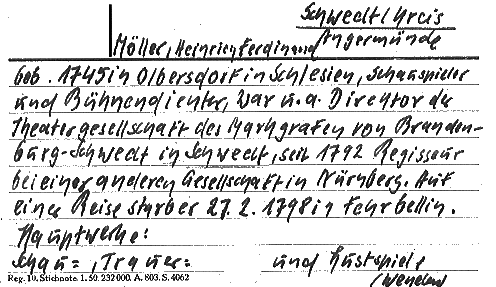 Schwedt/Kreis
Angermünde
Möller, Heinrich Ferdinand
geb. 1745 in Olbersdorf in Schlesien, Schauspieler
und Bühnendichter, war u.a. Direktor der
Theatergesellschaft des Markgrafen von Branden-
burg-Schwedt in Schwedt, seit 1792 Regisseur
bei einer anderen Gesellschaft in Nürnberg. Auf
einer Reise starb er 27. 2. 1798 in Fehrbellin.
Hauptwerke:
Schau=, Trauer= und Lustspiele
Reg. 10. Stichnote. 1. 50. 232000. A. 803. S. 4062